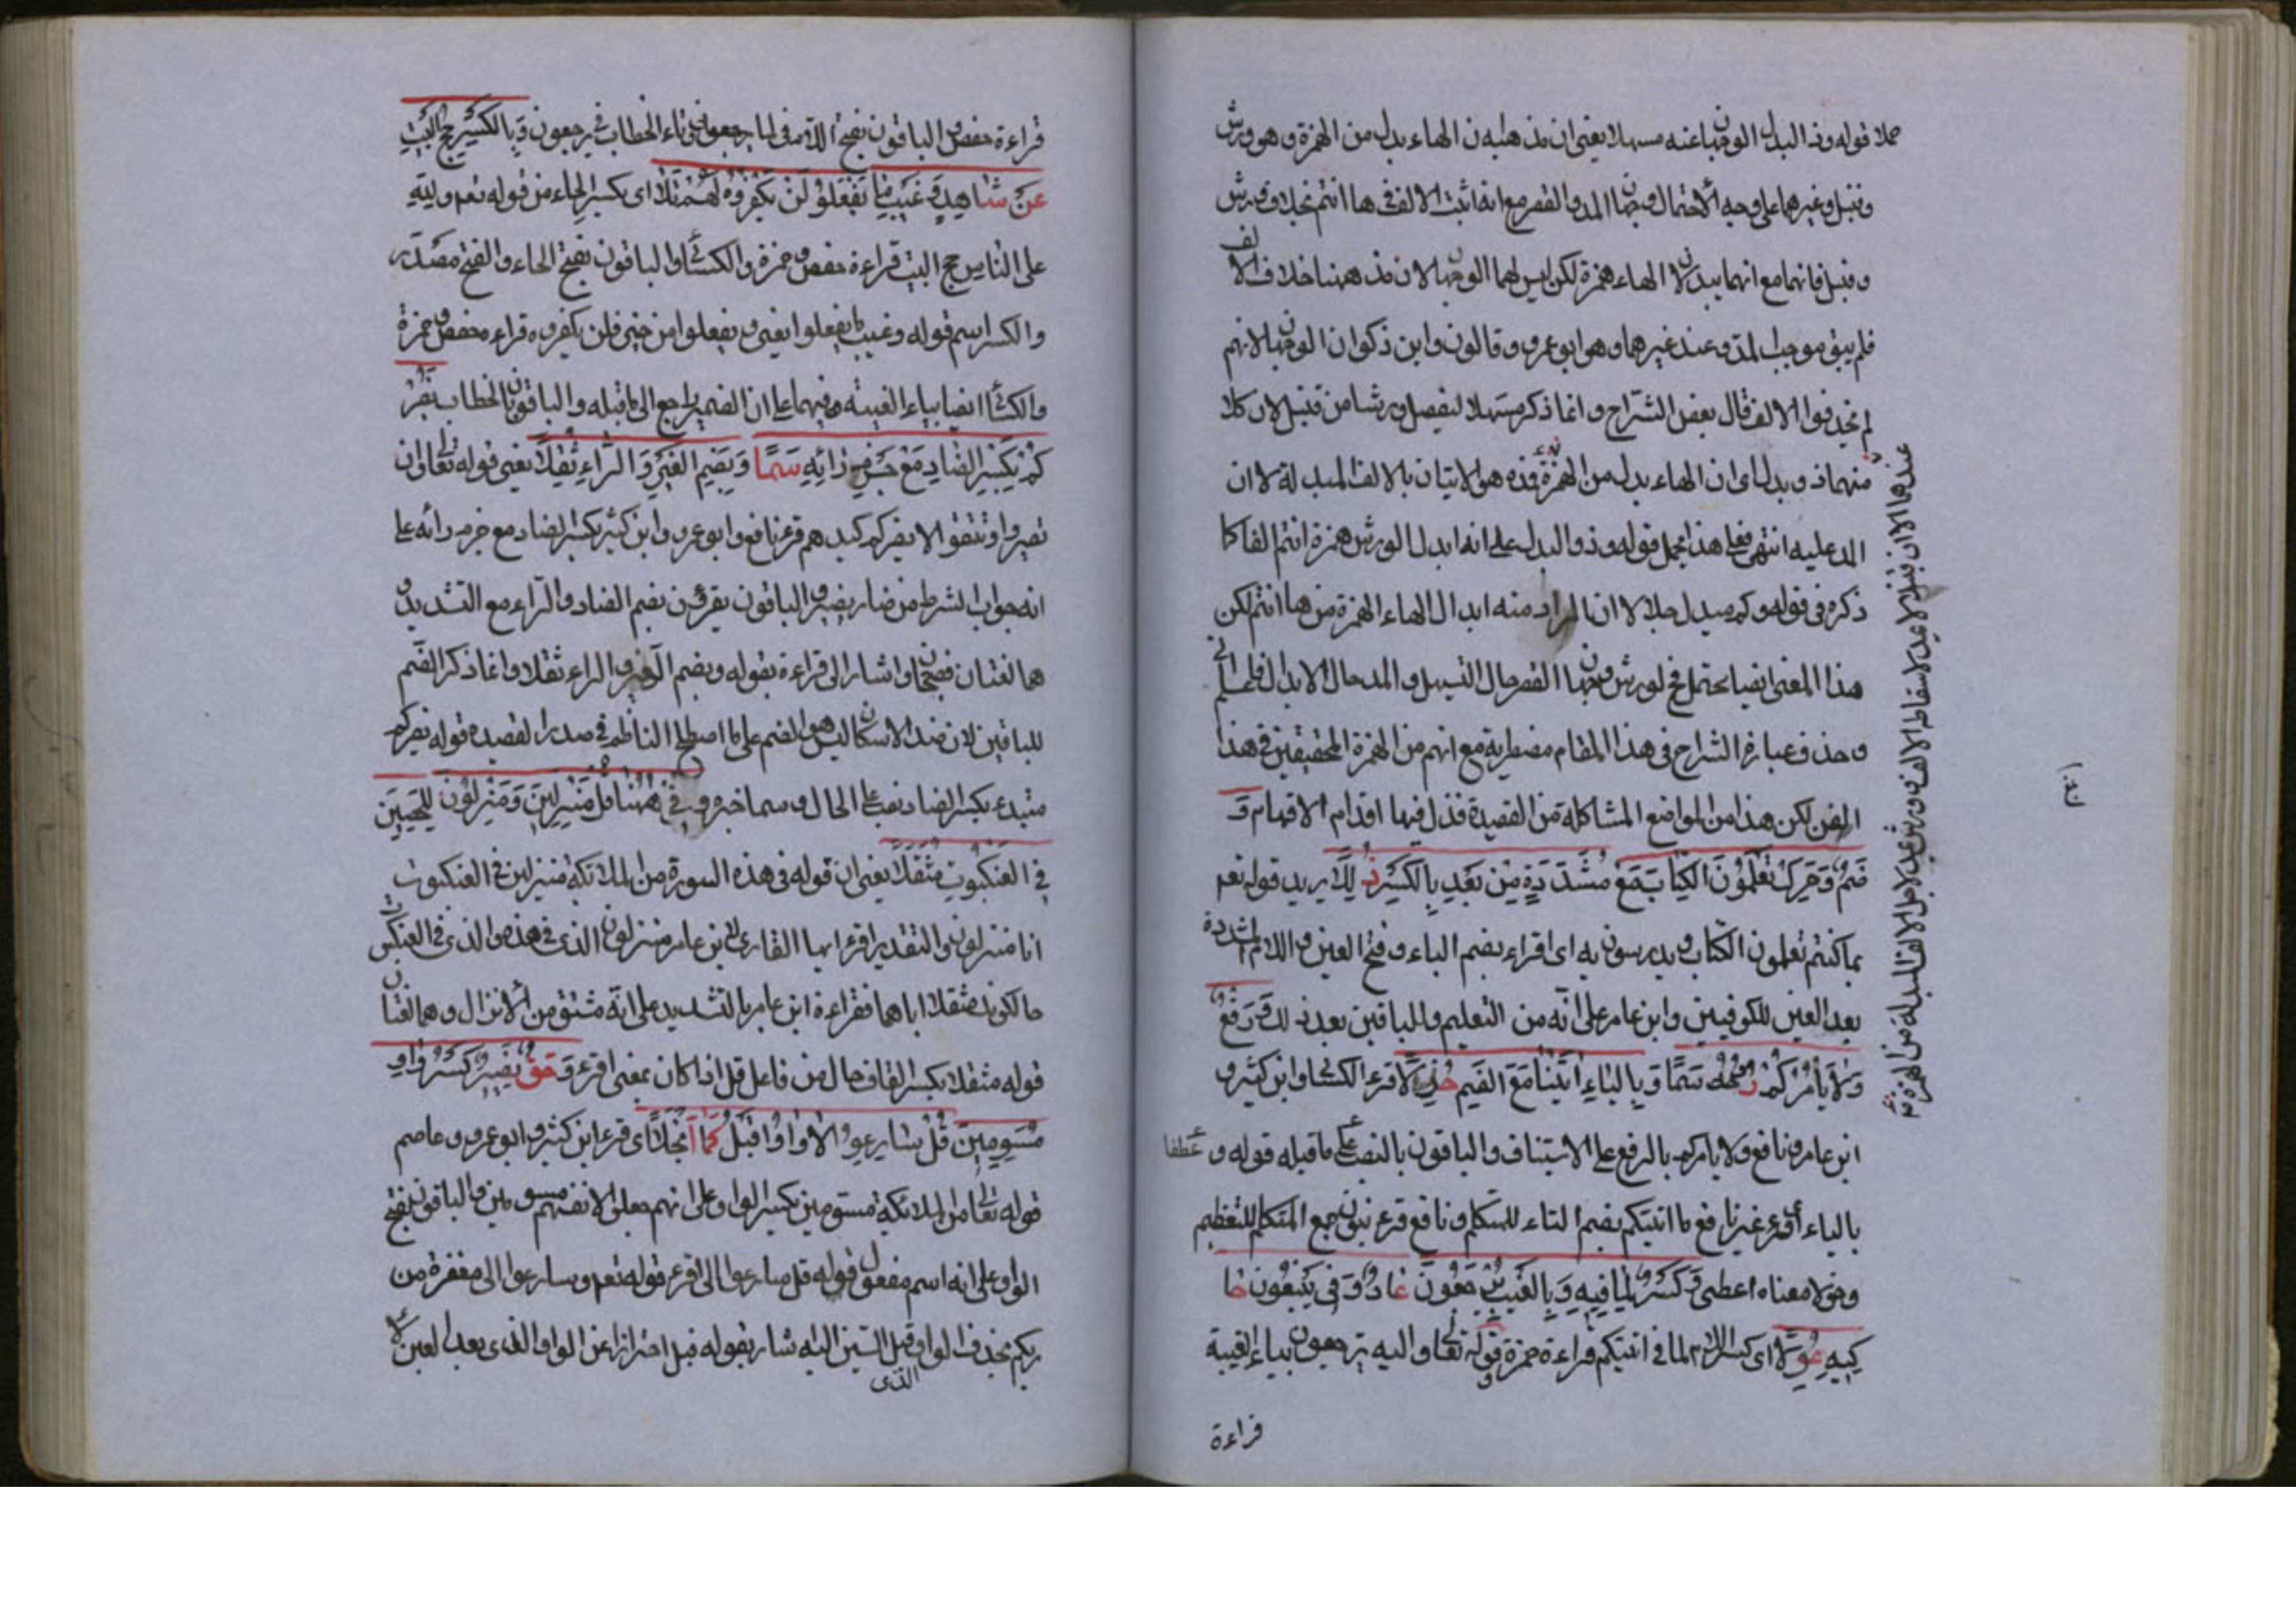 حملا قوله وذ البدل الوجهان عنه مسهلا يعني ان مذهبه ان الهاء بدل من الهمزة وهو ورش
وقنبل وغيرهما على وجه الاحتمال وجهان المد والقصر مع انه اثبت الالف في ها انتم بخلاف ورش
وقنبل فانهما مع انهما يبدلان الهاء همزة لكن ليس لهما الوجهان لان مذهبهما حذف الالف
فلم يبق موجب المد وعند غيرهما وهو ابو عمرو وقالون وابن ذكوان الوجهان لانهم
لم يحذفوا الالف قال بعض الشراح وانما ذكر مسهلا ليفصل ورشا من قنبل لان كلا
منهما ذو بدل اى ان الهاء بدل من الهمزة هو الاتيان بالالف المبدلة لا ان
المد عليه انتهى فعلى هذا يحمل قوله وذو البدل على انه ابدل الورش همزة انتم الفا كا
ذكره في قوله وكم مبدل جلا لا ان المراد منه ابدال الهاء الهمزة من ها انتم لكن
هذا المعنى ايضا يحتمل في لورش وجهان القصر حال التسهيل والمد حال الابدال
وحذف عبارة الشراح في هذا المقام مضطربة مع انهم من المحققين في هذا
الفن لكن هذا من المواضع المشاكلة من القصيدة قد زل فيها اقدام الافهام وَ
ضُمَّ وَحَرِّكْ تَعْلَمُوْنَ الكِتَابَ مَعْ مُشَدَّدَةٍ مِنْ بَعْدِ بِالكَسْرِ ذُلِّلَا يريد قوله تعم
بما كنتم تعلمون الكتاب وبدرسون به اى اقراء بضم التاء وفتح العين واللام المشددة
بعد العين للكوفيين وابن عامر على انه من التعليم وللباقين بعد ذلك وَرَفْعُ
وَلَا يَأْمُرْكُمْ رُوحُهُ سَمَا وَبِالتَاءِ اتَيْنَا مَعَ الضَّمِ خُوِّلَا قرء الكسائي وابن كثير و
ابن عامر ونافع ولا يامركم بالرفع على الاستيناف والباقون بالنصب على ما قبله قوله و عطفا
بالتاء اى قرء غير نافع ما اتيتكم بضم التاء للمتكلم ونافع قرء بنون جمع المتكلم للتعظيم
وخولا معناه اعطى وَكَسْرُ لِمَا فِيْهِ وَبِالغَيْبِ تُرْجَعُونَ عَادَ وَفي يَبْغُونَ حَا
كِيْهِ عَوَّلَا اى كسر اللام لما في اتيتكم قراءة حمزة وقوله تعالى واليه يرجعون بياء الغيبة
قراءة
قراءة حفص والباقون بفتح اللام في لما وتاء الخطاب في يرجعون وَبِالكَسْرِ حَجُّ البَيْتِ
عَنْ شَاهِدٍ وَغَيْبُ مَا تَفْعَلُوا لَنْ تُكْفَرُوْهُ لَهُمْ تَلَا اى بكسر الحاء من قوله تعم ولله
على الناس حج البيت قراءة حفص وحمزة والكسائي والباقون بفتح الحاء والفتح مصدر
والكسر اسم قوله وغيب ما يفعلوا يعني ويفعلوا من خير فلن يكفروه قراءة حفص وحمزة
والكسائي ايضا بياء الغيبة فيهما على ان الضمير راجع الى ما قبله والباقون بالخطاب يَضُرُّ
كُمْ بِكَسْرِ الضَادِ مَعْ جَزْمِ رَائِهِ سَمَا وَيَضُمُّ الغَيْرُ وَالرَّاءَ ثَقَّلَا يعني قوله تعالى ان
تصبروا وتتقوا لا يضركم كيدهم قرء نافع وابو عمرو وابن كثير بكسر الضاد مع جزم رائه على
انه جواب الشرط من ضار يضير والباقون يقرؤن بضم الضاد والراء مع التشديد و
هما لغتان فصيحتان واشار الى قراءة بقوله ويضم الغير والراء ثقلا وانما ذكر الضم
للباقين لان ضد الاسكان ليس هو الضم على ما اصطلح الناظم في صدر القصيدة قوله يضركم
مبتدء بكسر الضاد نصب على الحال وسما خبره وَفِي هَهُنَا قُلْ مُنْزِلِيْنَ وَمُنْزِلُوْنَ لِليَحْصَبِيْ
في العَنْكَبُوتِ مُثَقِّلَا يعني ان قوله في هذه السورة من الملائكة منزلين في العنكبوت
انا منزلون والتقدير اقرء ايها القارى لابن عامر منزلون الذى في هذه والذى في العنكبوت
حالكونه مثقلا اياهما فقراءة ابن عامر بالتشديد على انه مشتق من الانزال وهما لغتان
قوله مثقلا بكسر القاف حال من فاعل قل اذا كان بمعنى اقرء وَحَقُّ نَصِيْرٍ كَسْرُ وَاوِ
مُسَوِّمِيْنَ قُلْ سَارِعُوا لَا وَاوَ قَبْلُ كَمَا انْجَلَا اى قرء ابن كثير وابو عمرو وعاصم
قوله تعالى من الملائكة مسومين بكسر الواو على انهم جعلوا لانفسهم مسومين والباقون بفتح
الواو على انه اسم مفعول قوله قل سارعوا الى اقرء قوله تعم وسارعوا الى مغفرة من
ربكم بحذف الواو قبل السين اليه شار بقوله قبل احترازا عن الواو الذى بعد العين
الذى